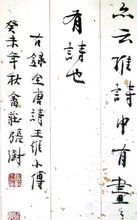 亦云維詩中有畫
有詩也
右錄全唐詩王維小傳
癸未年秋禽莊張澍